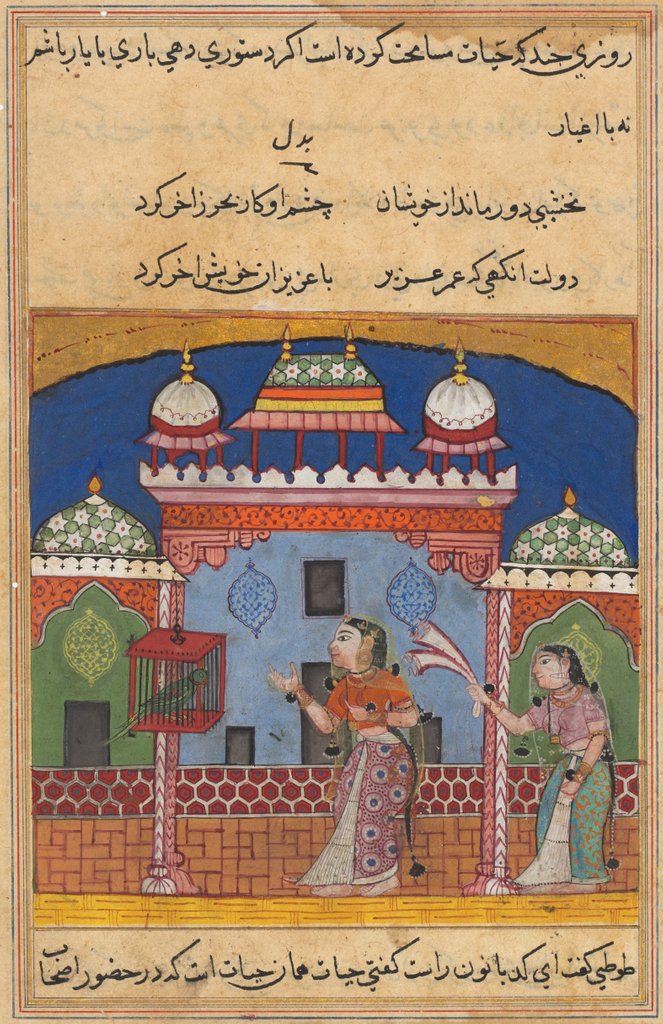 روزي چند که حیات مسامحت کرده است اکر دستوري دهي باري با یار باشم
نه با اغیار
نخشبي دور ماند از خوشان چشم او کار بحر زاخر کرد
دولت انکهي که عمر عزیز با عزیزان خویش اخر کرد
طوطي کفت اي کدبانون راست کفتي حیات همان حیات است که در حضور اصحاب